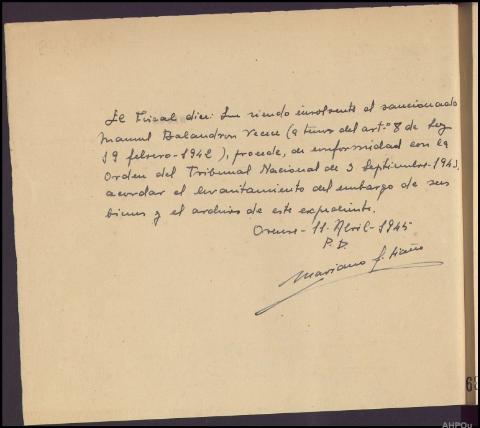 El Fiscal dice: Que siendo insolvente el sancionado
Manuel Balandron (a tenor del artº 8 de Ley
19 febrero-1942), procede, de conformidad con la
Orden del Tribunal Nacional de 3 Septiembre-1943,
acordar el levantamiento del embargo de sus
bienes y el archivo de este expediente.
Orense-11-Abril-1945
P.D.
Mariano
68
AHPOu